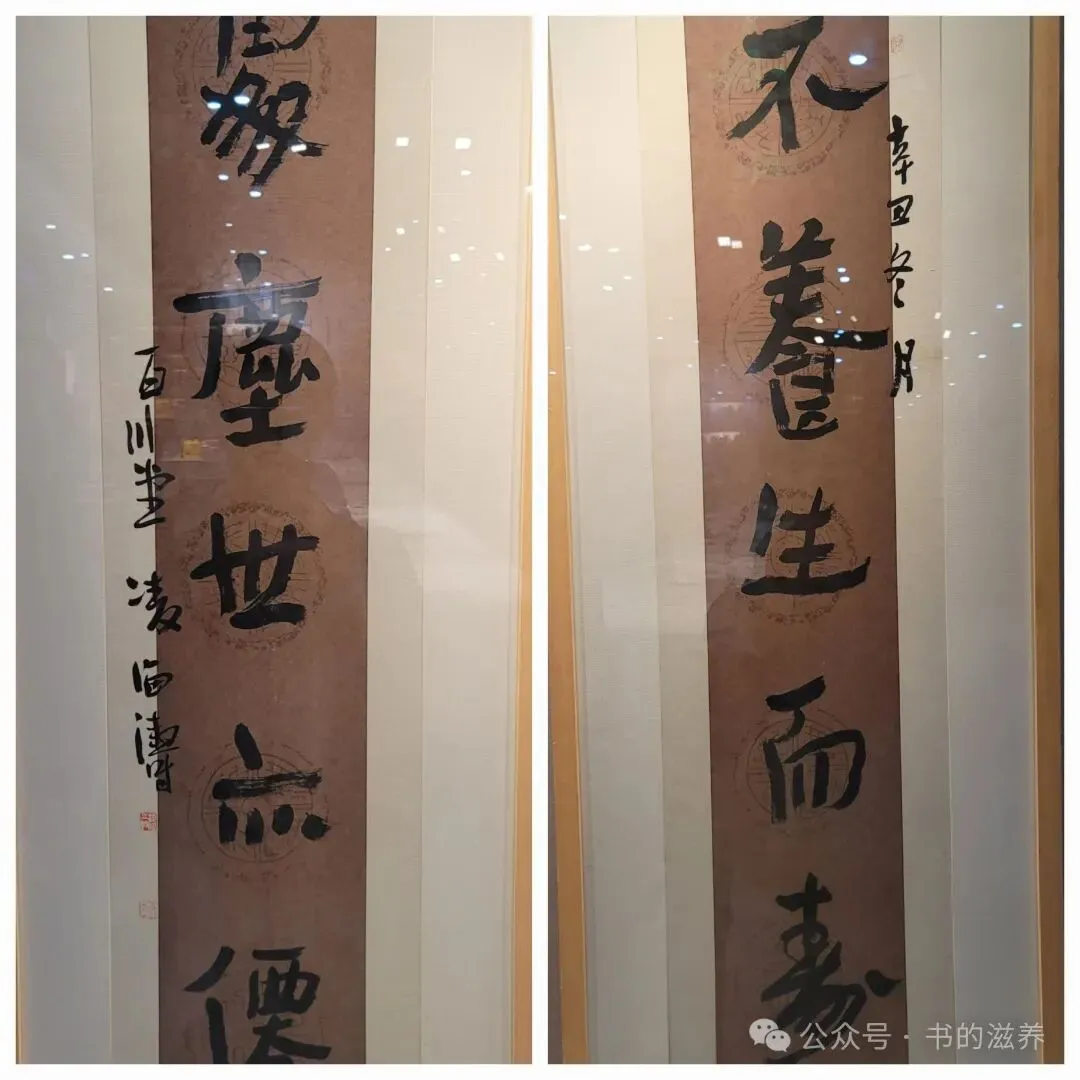 辛丑冬月
不養生而壽
塵世亦僊
百川堂 凌海濤
公众号·书的滋养